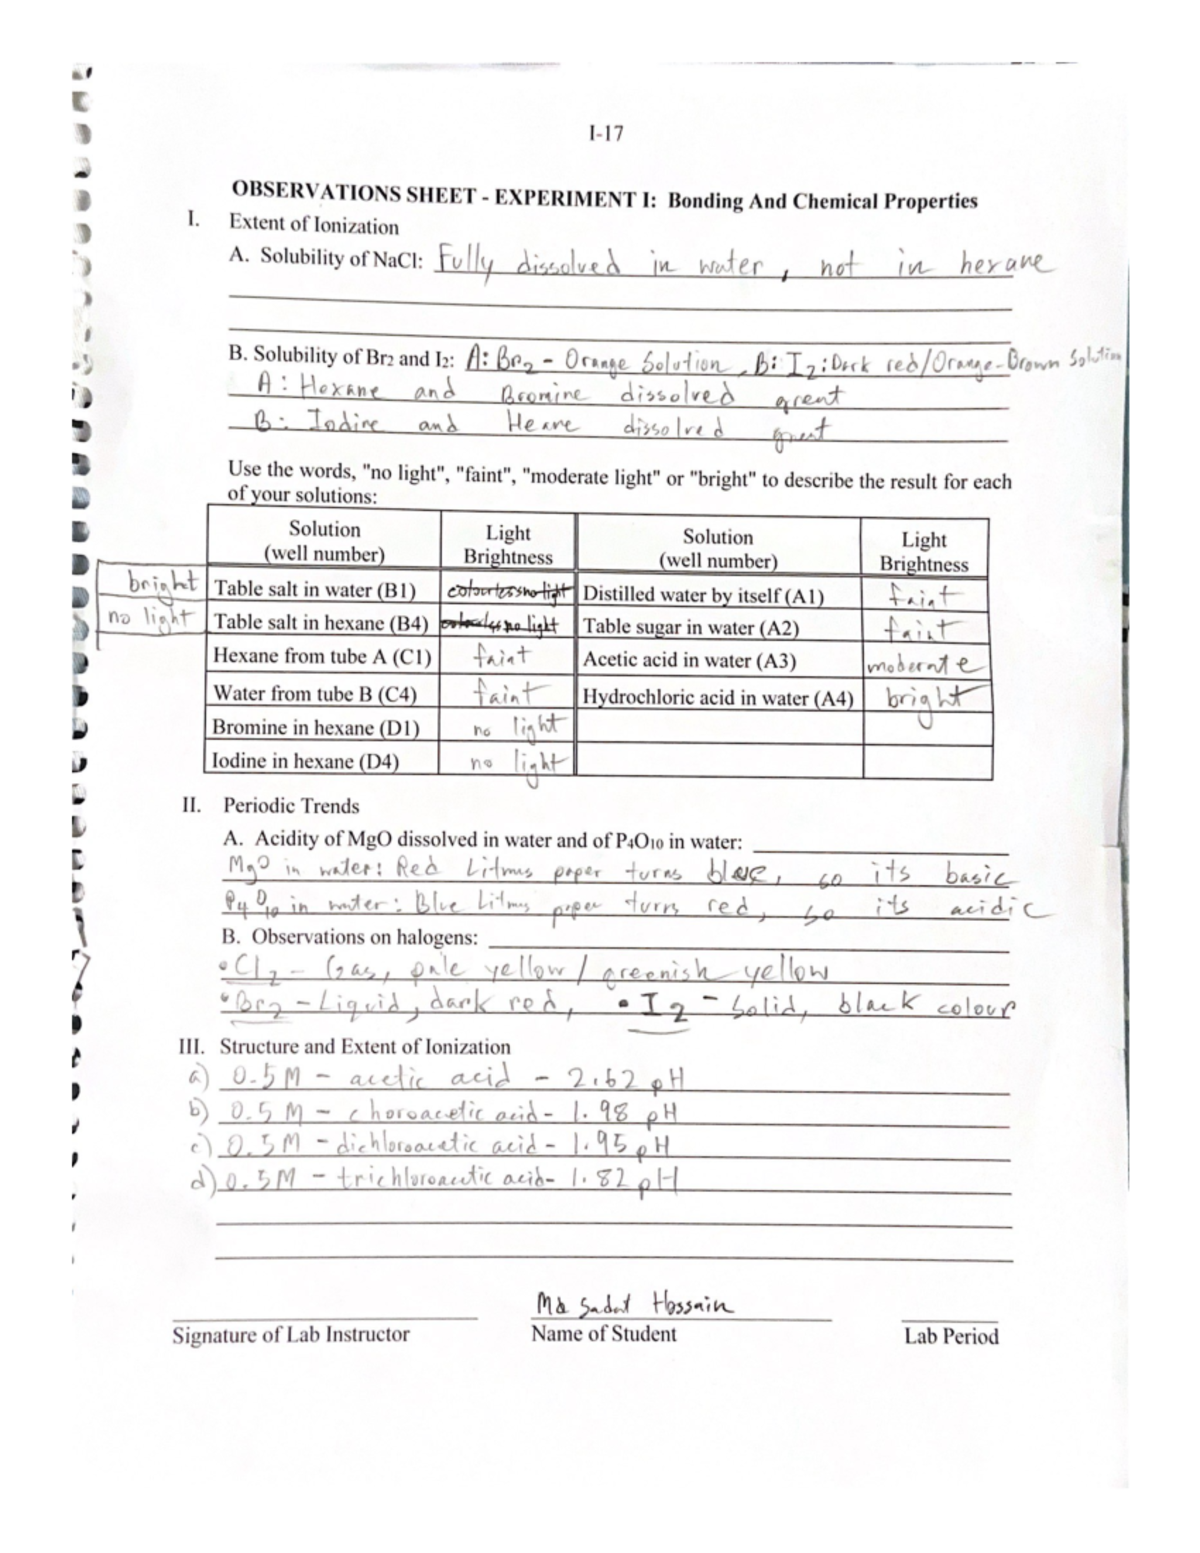 I-17
OBSERVATIONS SHEET - EXPERIMENT I: Bonding And Chemical Properties
I. Extent of Ionization
A. Solubility of NaCl: Fully dissolved in water, not in hexane
B. Solubility of Br2 and I2: A: Br2 - Orange Solution, B: I2: Dark red/Orange-Brown Solution
A: Hexane and Bromine dissolved great
B: Iodine and Hexane dissolved great
Use the words, "no light", "faint", "moderate light" or "bright" to describe the result for each
of your solutions:
Solution (well number) Light Brightness Solution (well number) Light Brightness
bright Table salt in water (B1) colourless no light Distilled water by itself (A1) faint
no light Table salt in hexane (B4) no light Table sugar in water (A2) faint
Hexane from tube A (C1) faint Acetic acid in water (A3) moderate
Water from tube B (C4) faint Hydrochloric acid in water (A4) bright
Bromine in hexane (D1) no light
Iodine in hexane (D4) no light
II. Periodic Trends
A. Acidity of MgO dissolved in water and of P4O10 in water:
MgO in water: Red Litmus paper turns blue, so its basic
P4O10 in water: Blue Litmus paper turns red, so its acidic
B. Observations on halogens:
• Cl2 - Gas, pale yellow / greenish yellow
• Br2 - Liquid, dark red, • I2 - Solid, black colour
III. Structure and Extent of Ionization
a) 0.5M - acetic acid - 2.62 pH
b) 0.5M - choroacetic acid - 1.98 pH
c) 0.5M - dichloroacetic acid - 1.95 pH
d) 0.5M - trichloroacetic acid - 1.82 pH
Md Sadat Hossain
Signature of Lab Instructor Name of Student Lab Period